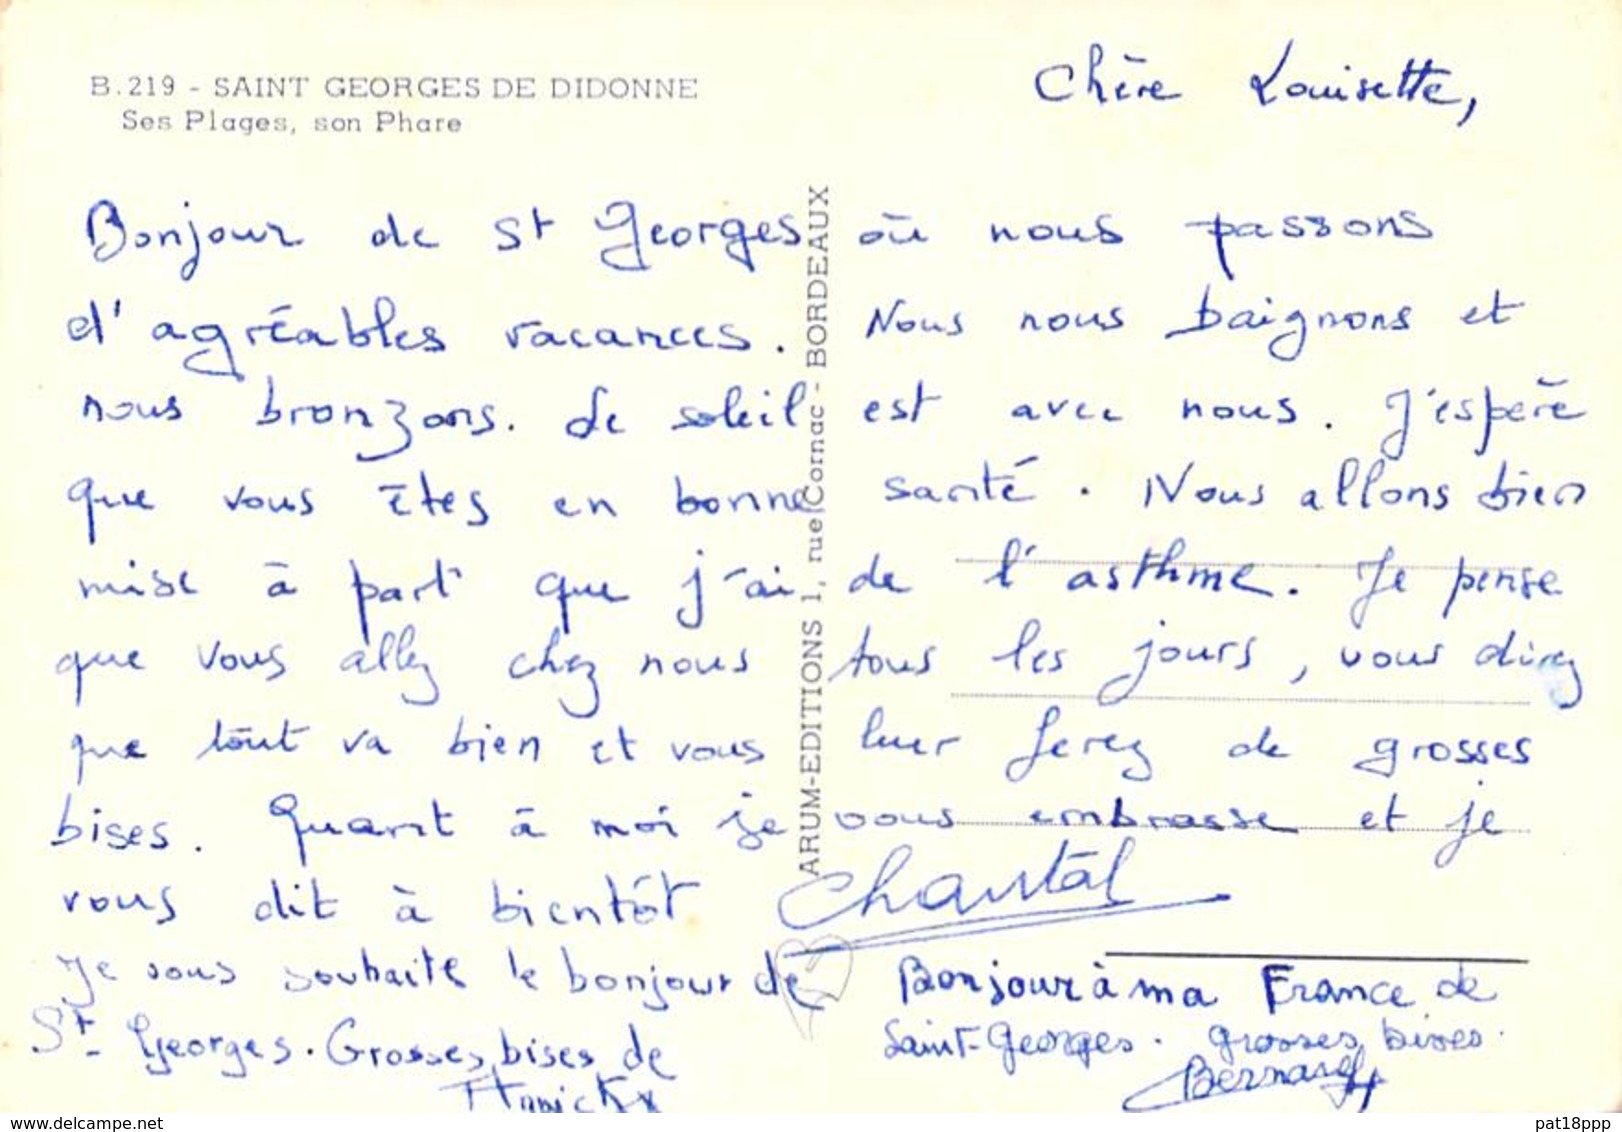 B.219 - SAINT GEORGES DE DIDONNE
Ses Plages, son Phare
Chère Louisette,
Bonjour de St Georges où nous passons
d'agréables vacances. Nous nous baignons et
nous bronzons. Le soleil est avec nous. J'espère
que vous êtes en bonne santé. Nous allons bien
mise à part que j'ai de l'asthme. Je pense
que vous allez chez nous tous les jours, vous direz
que tout va bien et vous leur ferez de grosses
bises. Quant à moi je vous embrasse et je
vous dit à bientôt
Chantal
Je vous souhaite le bonjour de
St-Georges. Grosses bises de
Bonjour à ma France de
Saint-Georges. grosses bises.
Bernard
ARUM-EDITIONS 1, rue Cornac - BORDEAUX
pat18ppp